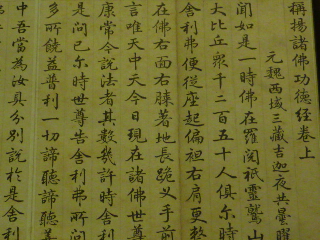 稱揚諸佛功德經卷上
元魏西域三藏吉迦夜共曇曜
聞如是一時佛在羅閱祇靈鷲山
大比丘眾千二百五十人俱尔時
舍利弗便從座起偏袒右肩更整
在佛右面右膝著地長跪叉手前
言唯天中天今日現在諸佛世尊
康常今說法者其數幾許時舍利
是問已尔時世尊告舍利弗所問
多所饒益普利一切諦聽諦聽善
中吾當為汝具分別說於是舍利